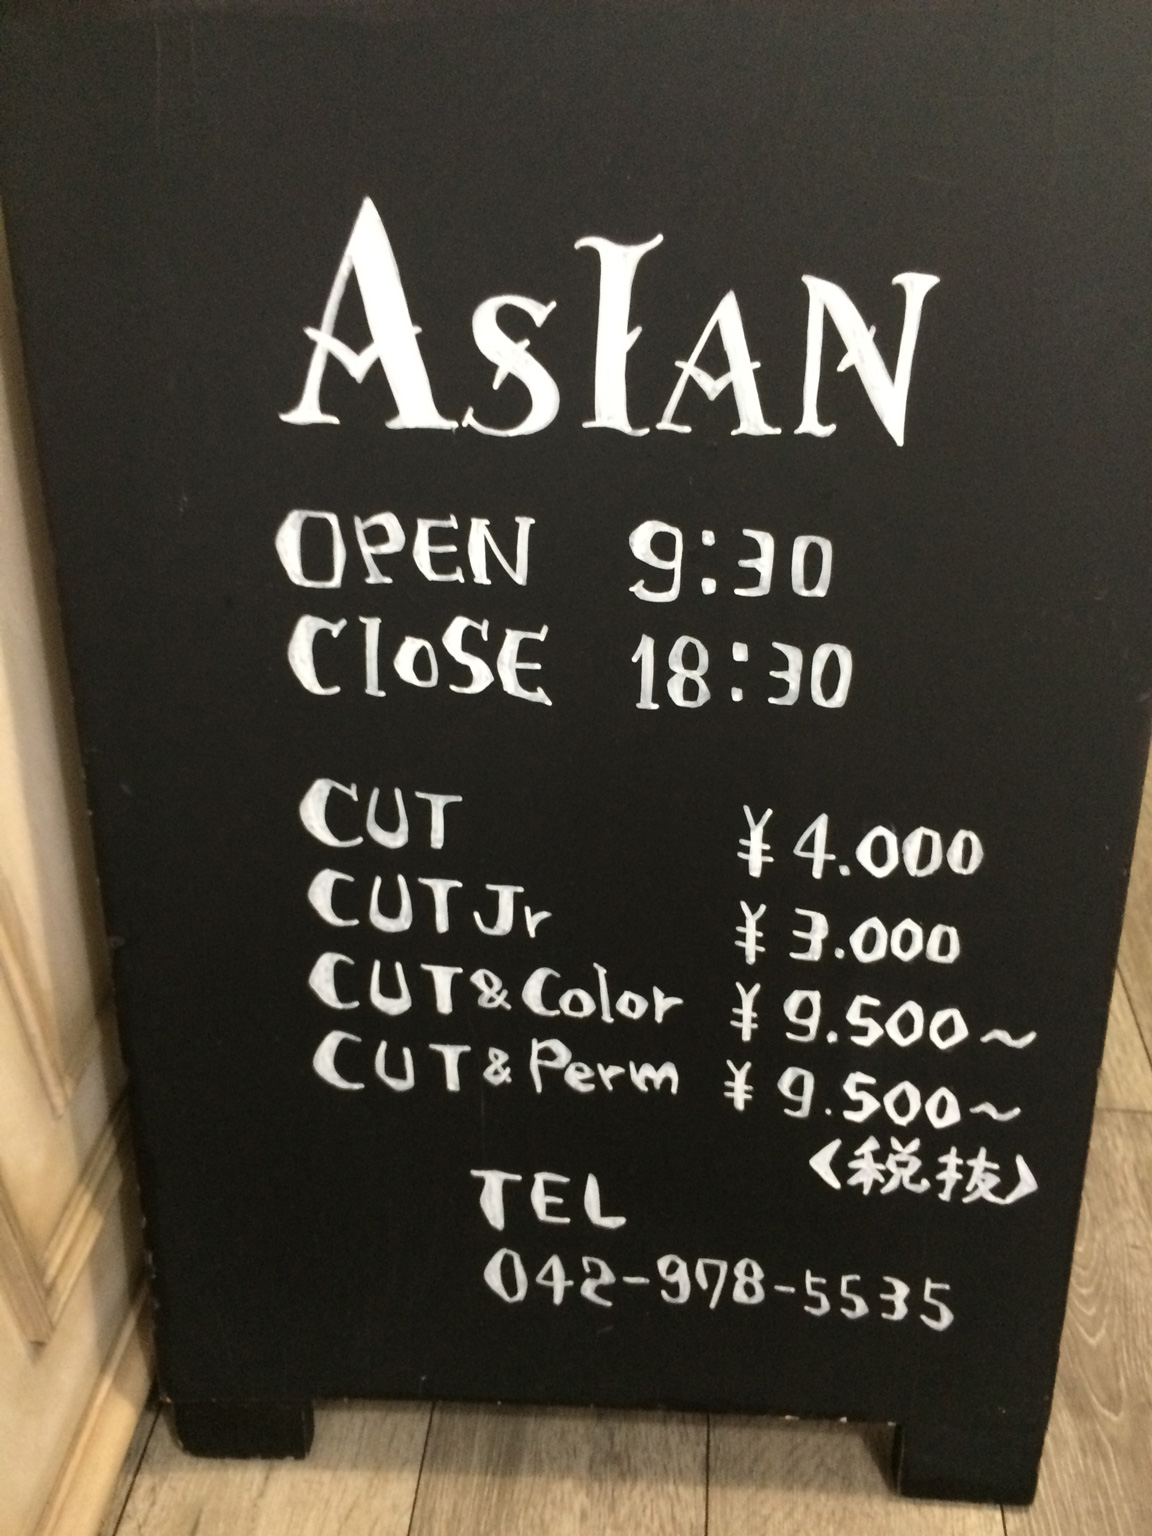 ASIAN
OPEN 9:30
CloSE 18:30
CUT ¥4.000
CUT Jr ¥3.000
CUT&Color ¥9.500~
CUT&Perm ¥9.500~
〈税抜〉
TEL
042-978-5535